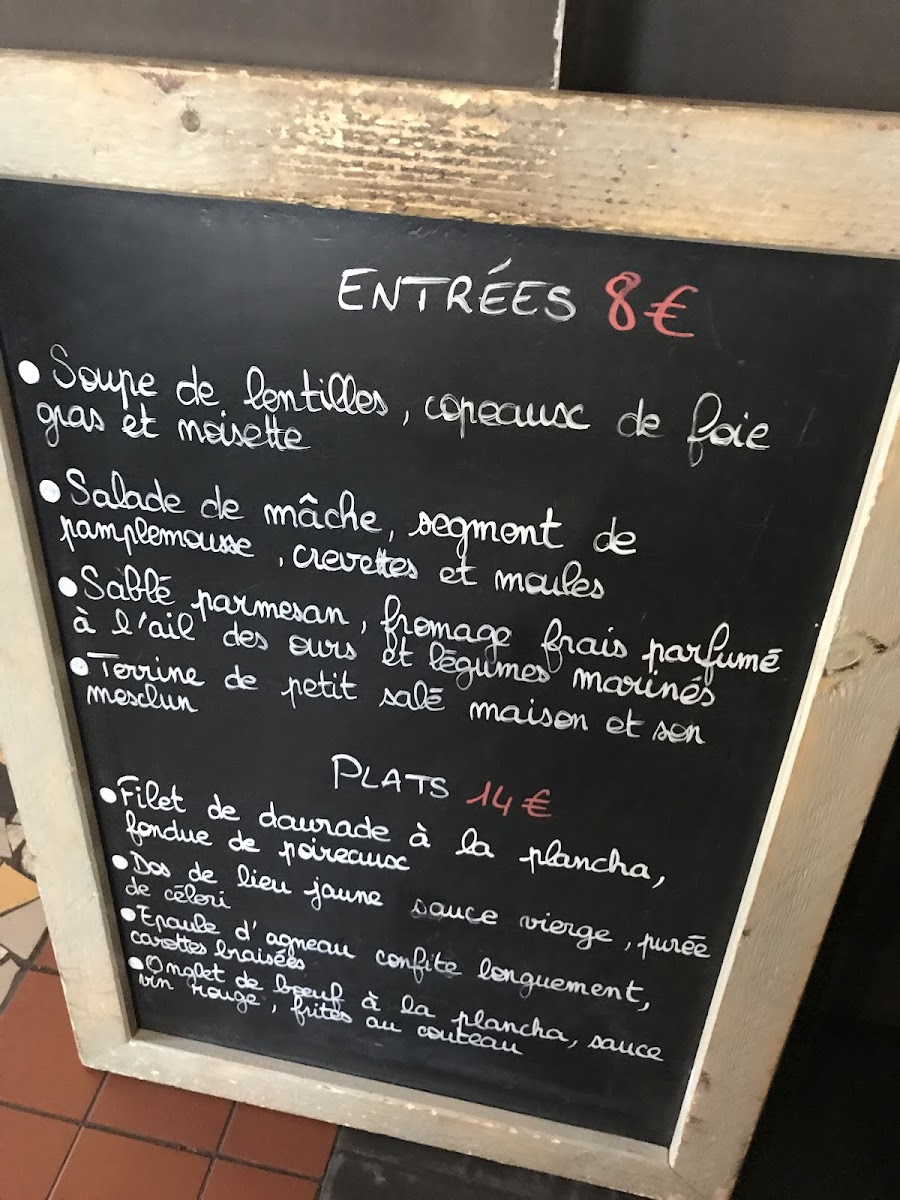 ENTRÉES 8€
• Soupe de lentilles, copeaux de foie
gras et noisette
• Salade de mâche, segment de
pamplemousse, crevettes et moules
• Sablé parmesan, fromage frais parfumé
à l'ail des ours et légumes marinés
• Terrine de petit salé maison et son
mesclun
PLATS 14€
• Filet de daurade à la plancha,
fondue de poireaux
• Dos de lieu jaune sauce vierge, purée
de céleri
• Epaule d'agneau confite longuement,
carottes braisées
• Onglet de bœuf à la plancha, sauce
vin rouge, frites au couteau